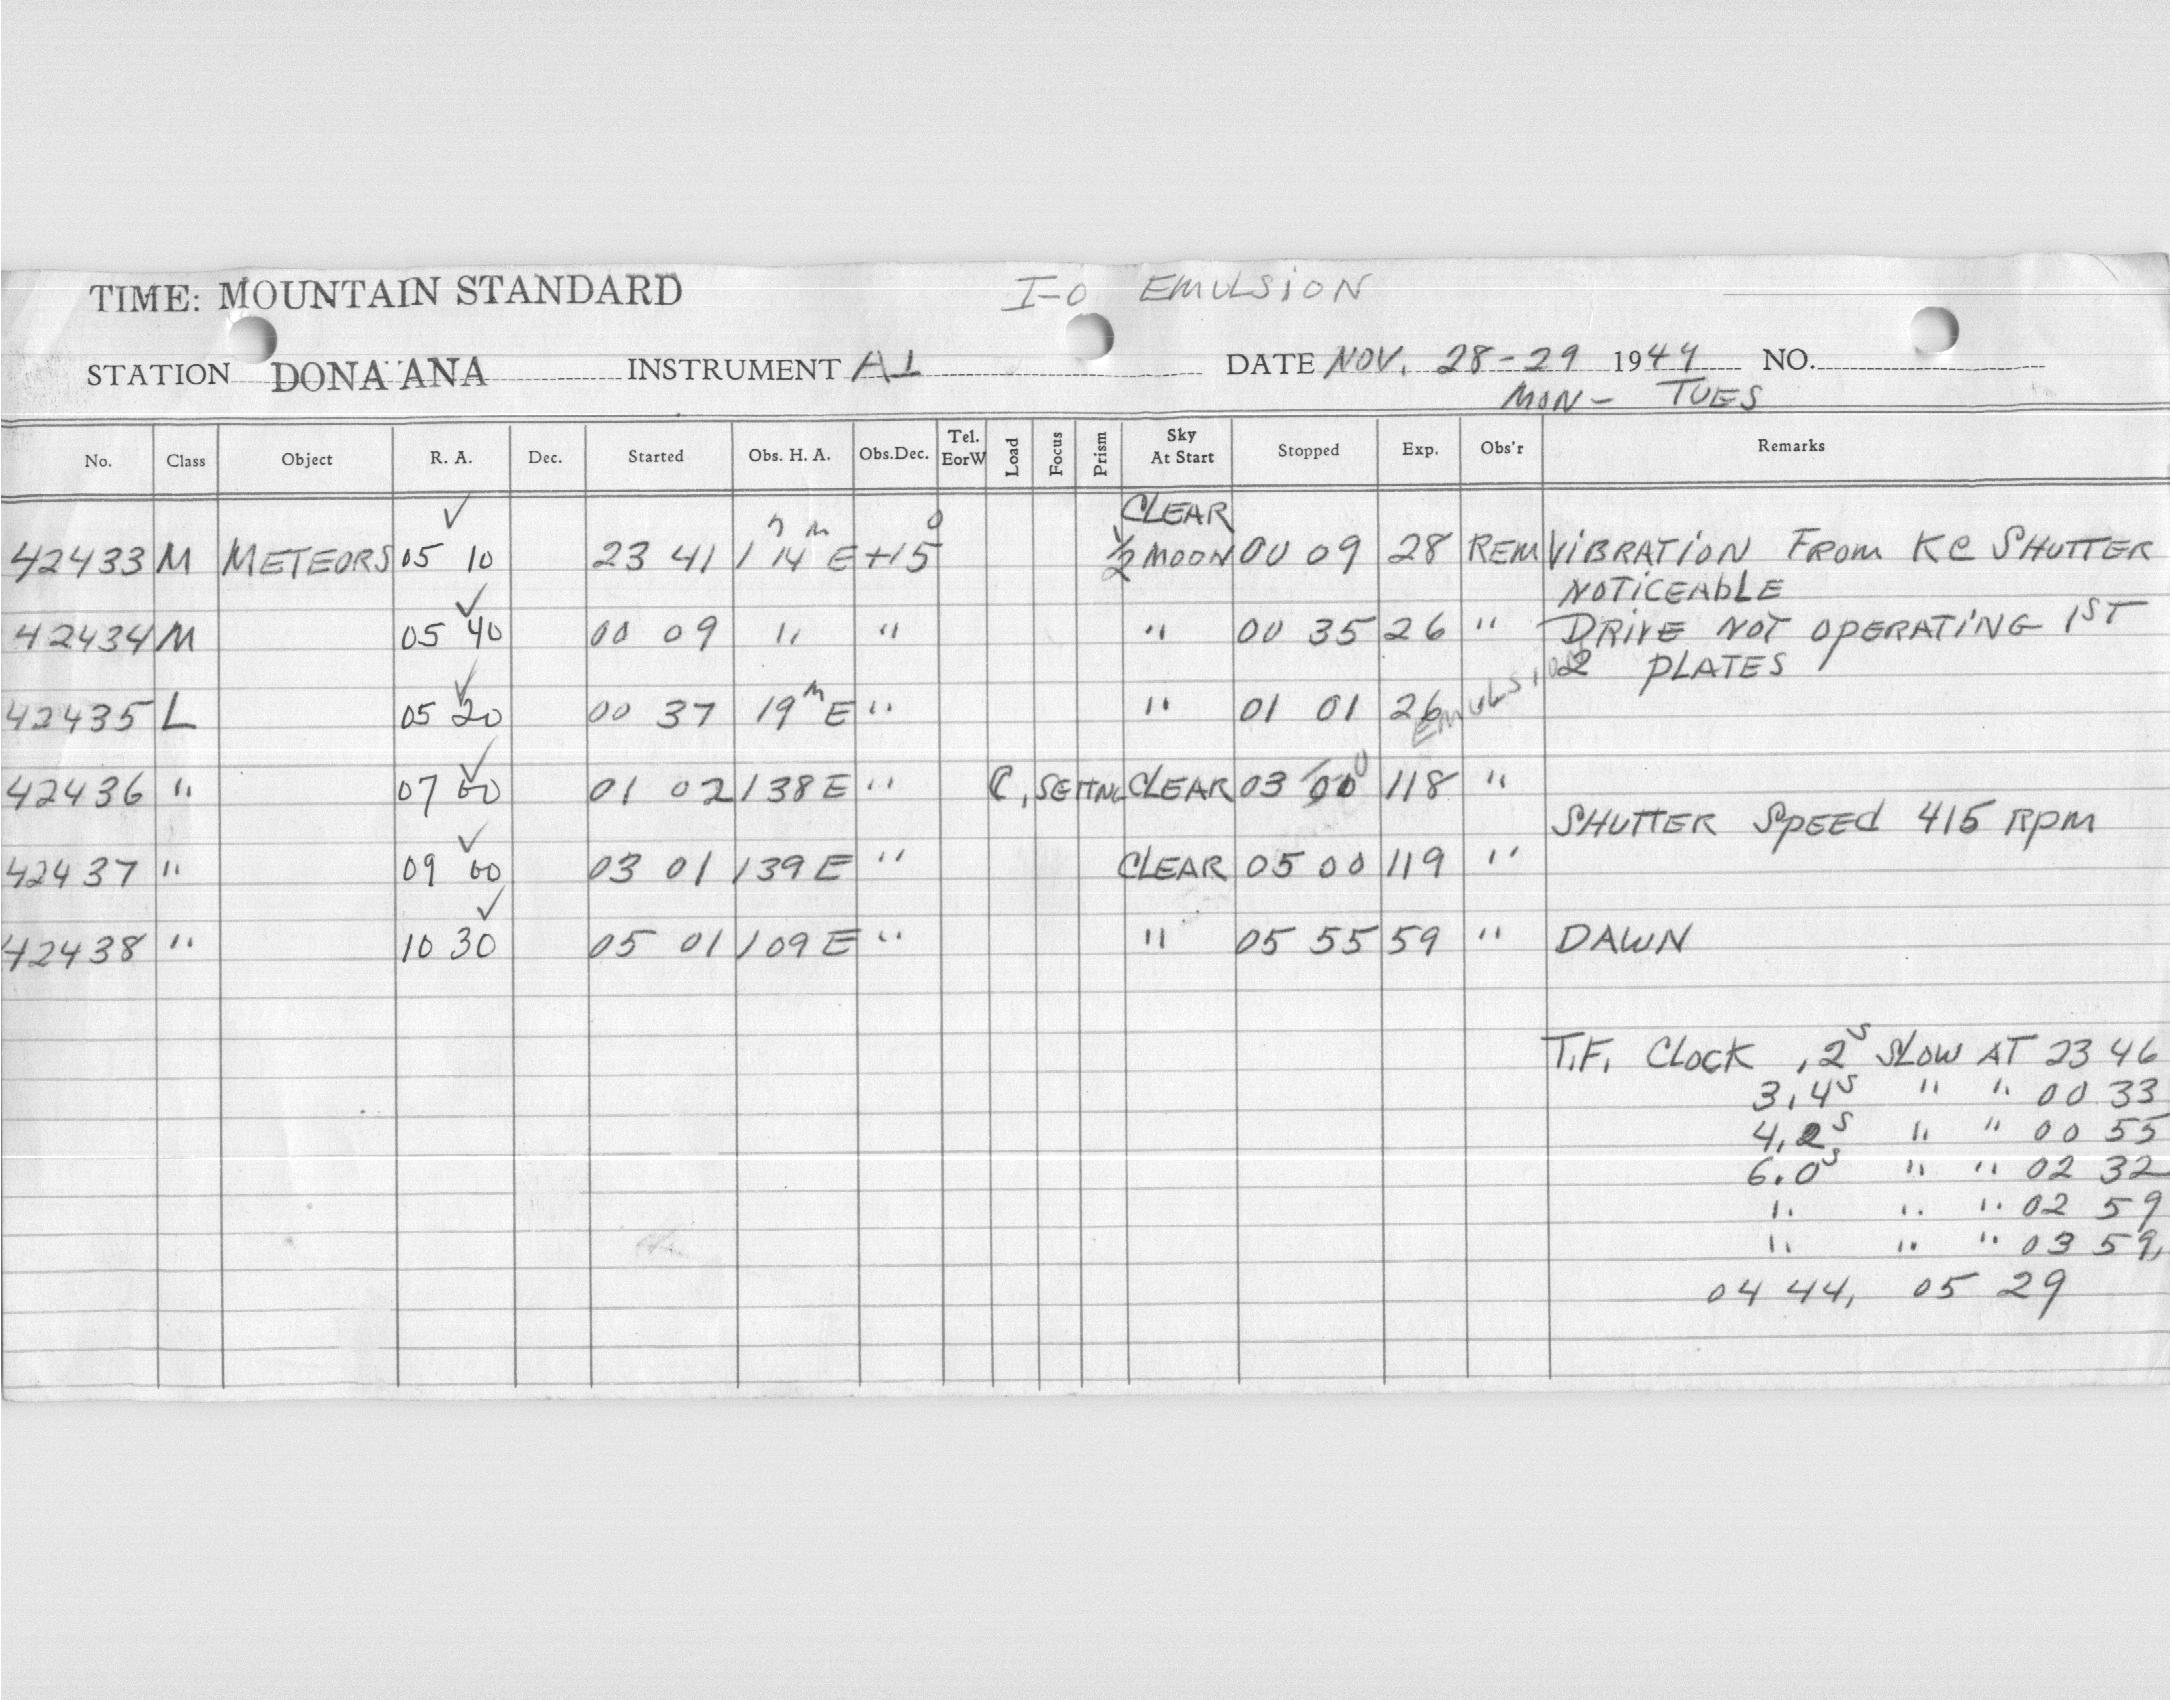 TIME: MOUNTAIN STANDARD I-O EMULSION
STATION DONA ANA INSTRUMENT A1 DATE NOV. 28-29 1944 NO.
MON - TUES
No. Class Object R. A. Dec. Started Obs. H. A. Obs.Dec. Tel. EorW Load Focus Prism Sky At Start Stopped Exp. Obs'r Remarks
✓ CLEAR
42433 M METEORS 05 10 23 41 1h 14m E +15° 1/2 MOON 00 09 28 REM VIBRATION FROM KE SHUTTER
NOTICEABLE
✓
42434 M 05 40 00 09 " " " 00 35 26 " DRIVE NOT OPERATING 1ST
2 PLATES
✓
42435 L 05 20 00 37 19m E " " 01 01 26
EMULSION
✓
42436 " 07 00 01 02 1 38 E " ☾, SETTNG CLEAR 03 00 118 "
SHUTTER SPEED 415 RPM
✓
42437 " 09 00 03 01 1 39 E " CLEAR 05 00 119 "
✓
42438 " 10 30 05 01 1 09 E " " 05 55 59 " DAWN
T.F. CLOCK .2s SLOW AT 23 46
3.4s " " 00 33
4.2s " " 00 55
6.0s " " 02 32
" " " 02 59
" " " 03 59,
04 44, 05 29